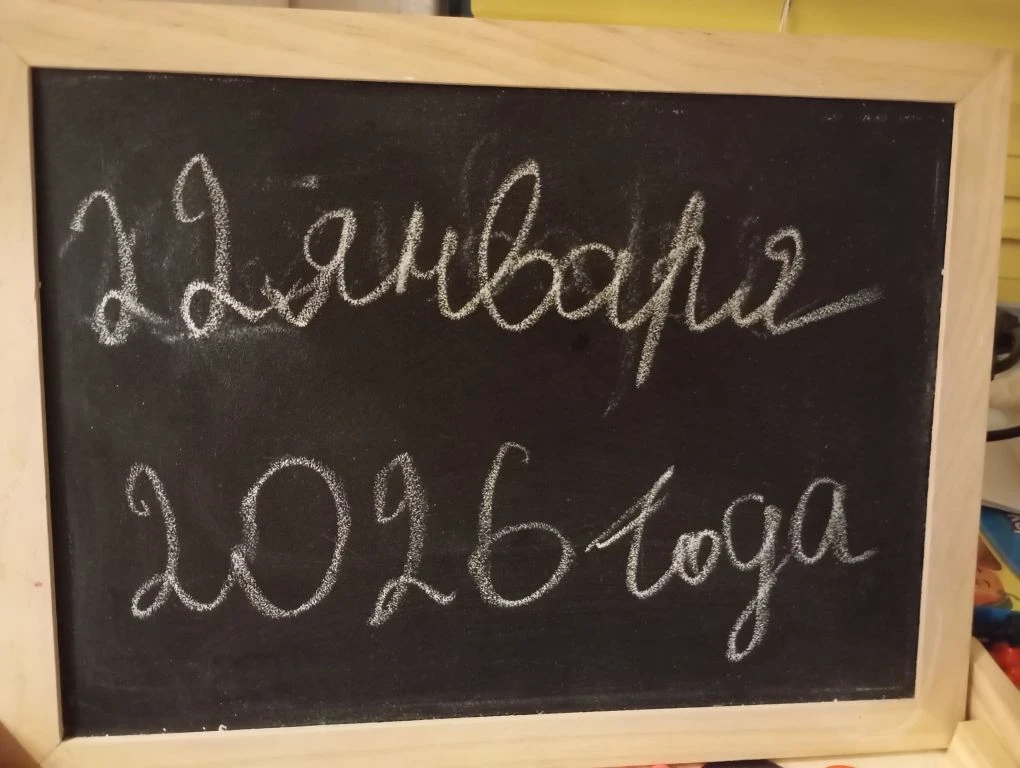 22 января
2026 года